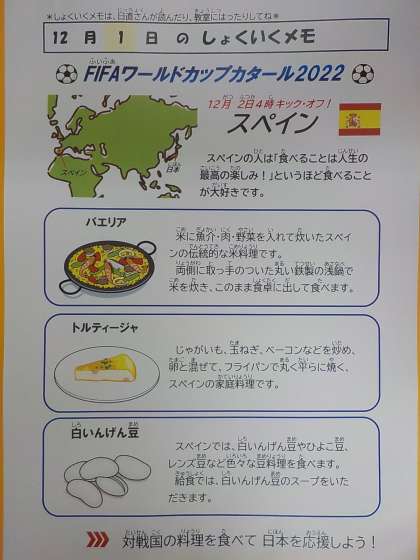 ＊しょくいくメモは、日直さんが読んだり、教室にはったりしてね＊
12 月 1 日 の しょくいくメモ
FIFAワールドカップカタール2022
12月 2日4時キック・オフ！
スペイン
スペイン
日本
スペインの人は「食べることは人生の
最高の楽しみ！」というほど食べること
が大好きです。
パエリア
米に魚介・肉・野菜を入れて炊いたスペイ
ンの伝統的な米料理です。
両側に取っ手のついた丸い鉄製の浅鍋で
米を炊き、このまま食卓に出して食べます。
トルティージャ
じゃがいも、玉ねぎ、ベーコンなどを炒め、
卵と混ぜて、フライパンで丸く平らに焼く、
スペインの家庭料理です。
白いんげん豆
スペインでは、白いんげん豆やひよこ豆、
レンズ豆など色々な豆料理を食べます。
給食では、白いんげん豆のスープをいた
だきます。
対戦国の料理を食べて 日本を応援しよう！